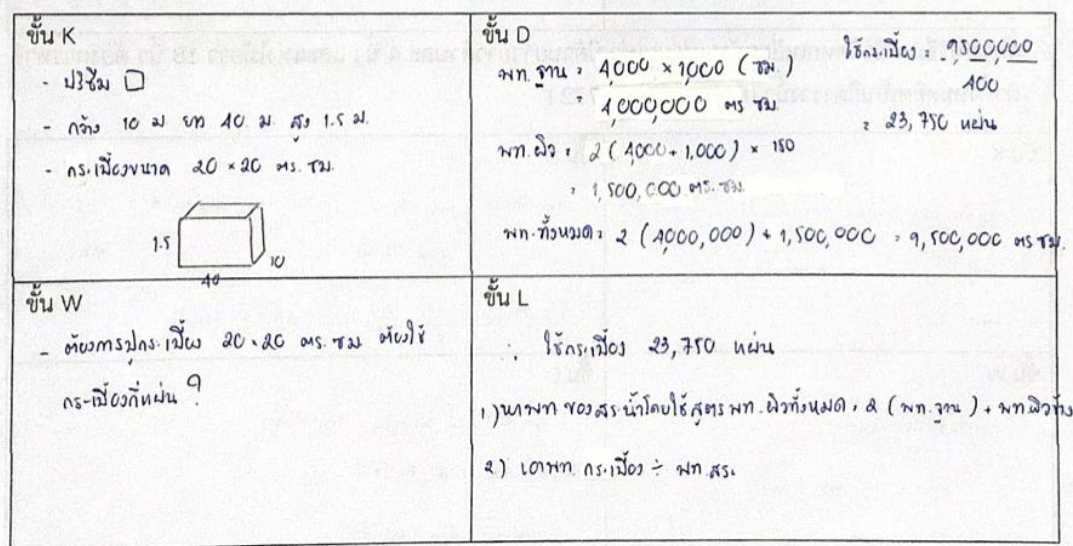 ขั้น K
- ปริซึม □
- กว้าง 10 ม ยาว 40 ม. สูง 1.5 ม.
- กระเบื้องขนาด 20 × 20 ตร. ซม.
1.5
10
40
ขั้น D
พท. ฐาน = 4000 × 1,000 (ซม)
= 4,000,000 ตร ซม
พท. ผิว = 2 (4,000 + 1,000) × 150
= 1,500,000 ตร. ซม.
พท. ทั้งหมด = 2 (4,000,000) + 1,500,000 = 9,500,000 ตร ซม.
ใช้กระเบื้อง = 9500,000
400
= 23,750 แผ่น
ขั้น W
- ต้องการปูกระเบื้อง 20 × 20 ตร. ซม ต้องใช้
กระเบื้องกี่แผ่น ?
ขั้น L
∴ ใช้กระเบื้อง 23,750 แผ่น
1.) หาพท ของสระน้ำโดยใช้สูตร พท. ผิวทั้งหมด = 2 (พท. ฐาน) + พท ผิวข้าง
2) เอาพท. กระเบื้อง ÷ พท. สระ